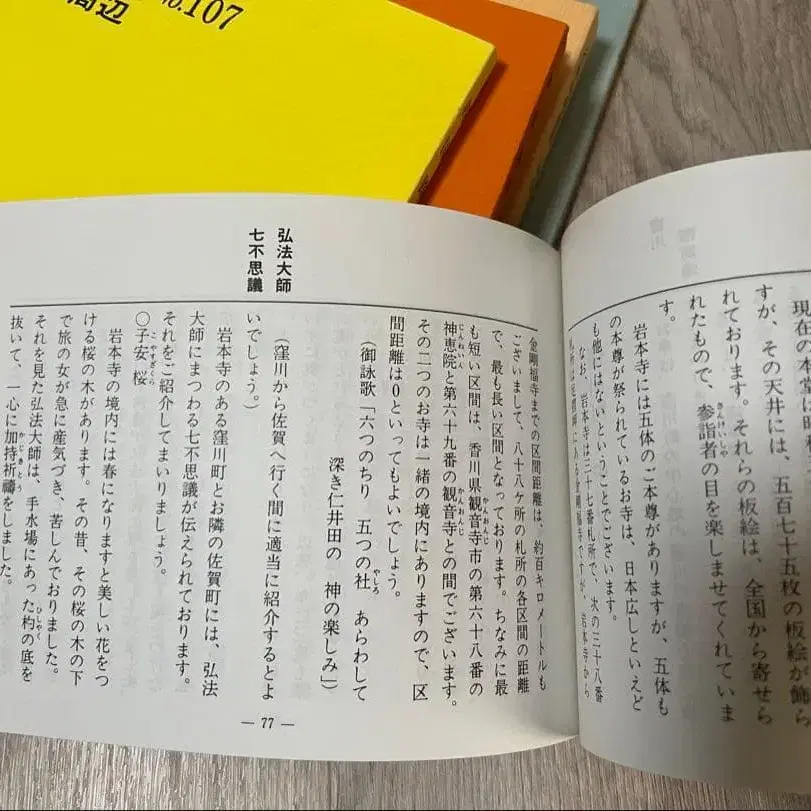 No.107
周辺
現在の本堂は昭和
すが、その天井には、五百七十五枚の板絵が飾ら
れております。それらの板絵は、全国から寄せら
れたもので、参詣者の目を楽しませてくれていま
す。
岩本寺には五体のご本尊がありますが、五体も
の本尊が祭られているお寺は、日本広しといえど
も他にはないということでございます。
なお、岩本寺は三十七番札所で、次の三十八番
札所は足摺岬にある金剛福寺ですが、岩本寺から
金剛福寺までの区間距離は、約百キロメートルも
ございまして、八十八ヶ所の札所の各区間の距離
で、最も長い区間となっております。ちなみに最
も短い区間は、香川県観音寺市の第六十八番の
神恵院と第六十九番の観音寺との間でございます。
その二つのお寺は一緒の境内にありますので、区
間距離は0といってもよいでしょう。
(御詠歌「六つのちり 五つの社 あらわして
深き仁井田の 神の楽しみ」)
弘法大師
七不思議
(窪川から佐賀へ行く間に適当に紹介するとよ
いでしょう。)
岩本寺のある窪川町とお隣の佐賀町には、弘法
大師にまつわる七不思議が伝えられております。
それをご紹介してまいりましょう。
〇子安桜
岩本寺の境内には春になりますと美しい花をつ
ける桜の木があります。その昔、その桜の木の下
で旅の女が急に産気づき、苦しんでおりました。
それを見た弘法大師は、手水場にあった杓の底を
抜いて、一心に加持祈禱をしました。
— 77 —